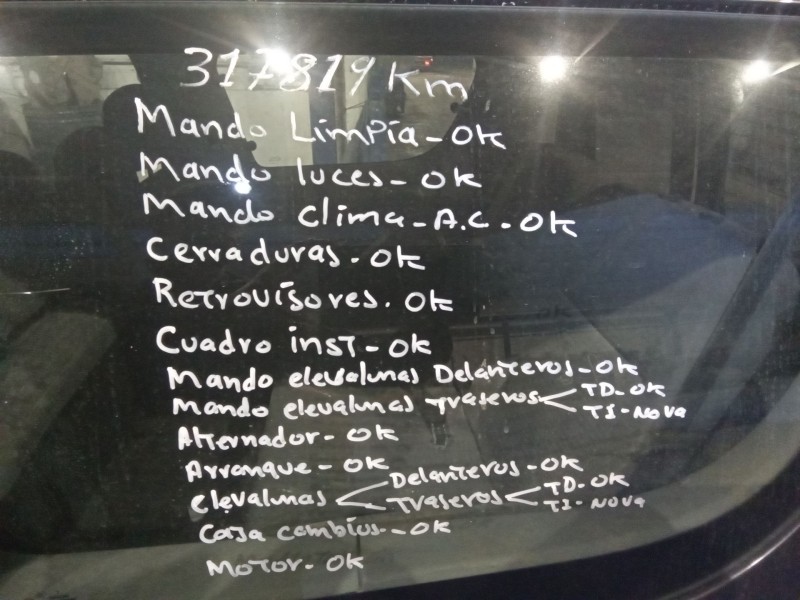 317819 Km
Mando Limpia - OK
Mando luces - OK
Mando clima - A.C - OK
Cerraduras - OK
Retrovisores. OK
Cuadro inst - OK
Mando elevalunas Delanteros - OK
Mando elevalunas traseros < TD - OK
TI - NO VA
Alternador - OK
Arranque - OK
Elevalunas < Delanteros - OK
traseros < TD - OK
TI - NO VA
Caja cambios - OK
Motor - OK